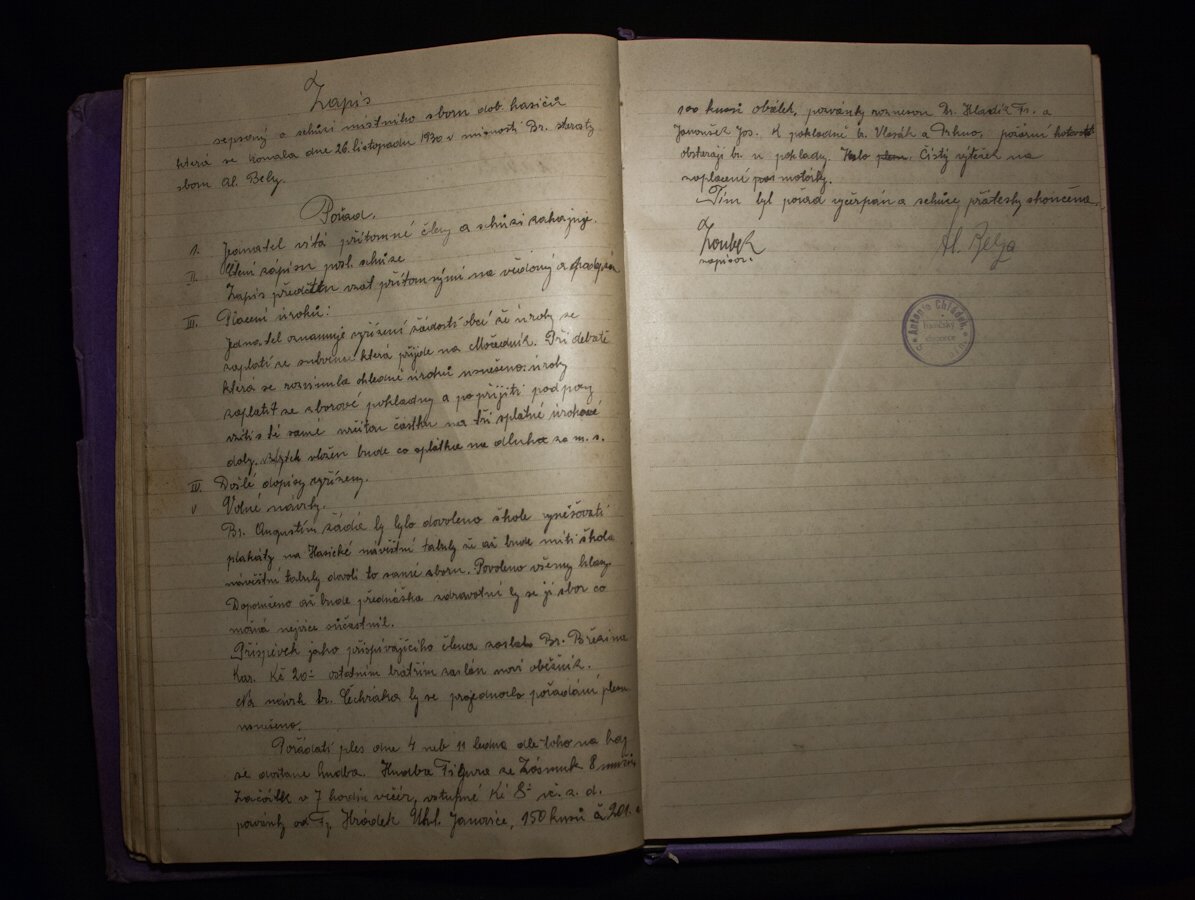 Zápis
sepsaný o schůzi místního sboru dob. hasičů
která se konala dne 26. listopadu 1930 v místnosti Br. starosty
sboru Al. Bely.
Pořad.
1. Jednatel vítá přítomné členy a schůzi zahajuje.
II. Čtení zápisu posl. schůze
Zápis předčten vzat přítomnými na vědomí a
III. Placení úroků:
Jednatel oznamuje vyřízení žádosti obcí že úroky se
zaplatí ze subvence která přijde na Močedník. Při debatě
která se rozvinula ohledně úroků usnešeno: úroky
zaplatit ze sborové pokladny a po přijití podpory
vzíti s té samé určitou částku na tři splatné úrokové
doby. Zbytek vložen bude co splátka na dluh za m. s.
IV. Došlé dopisy vyřízeny.
V Volné návrhy.
Br. Augustin žádá by bylo dovoleno škole vyvěšovati
plakáty na Hasičké návěštní tabuly že až bude míti škola
návěštní tabuly dovolí to samé sboru. Povoleno všemy hlasy.
Doporučeno až bude přednáška zdravotní by se jí sbor co
možná nejvíce súčastnil.
Příspěvek jako přispívajícího člena zaslal Br. Březina
Kar. Kč 20·- ostatním bratřím zaslán nový oběžník.
Na návrh br. Čechráka by se projednalo pořádání plesu
usnešeno.
Pořádati ples dne 4 neb 11 ledna dle toho na kdy
se dostane hudba. Hudba Figura ze Zásmuk 8
Začátek v 7 hodin večer, vstupné Kč 8·- vč. z. d.
pozvánky od Fy. Hrádek Uhl. Janovice, 150 kusů á 20 h.
100 kusů obálek, pozvánky roznesou Br. Hladík Fr. a
Janoušek Jos. K pokladně b. Vlasák a Trhno, požární
obstarají br. u pokladny. Čistý výtěžek na
zaplacení motorky.
Tím byl pořad vyčerpán a schůze přátelsky skončena.
Zoubek
zapisov.
Al. Bela
Antonín Chládek